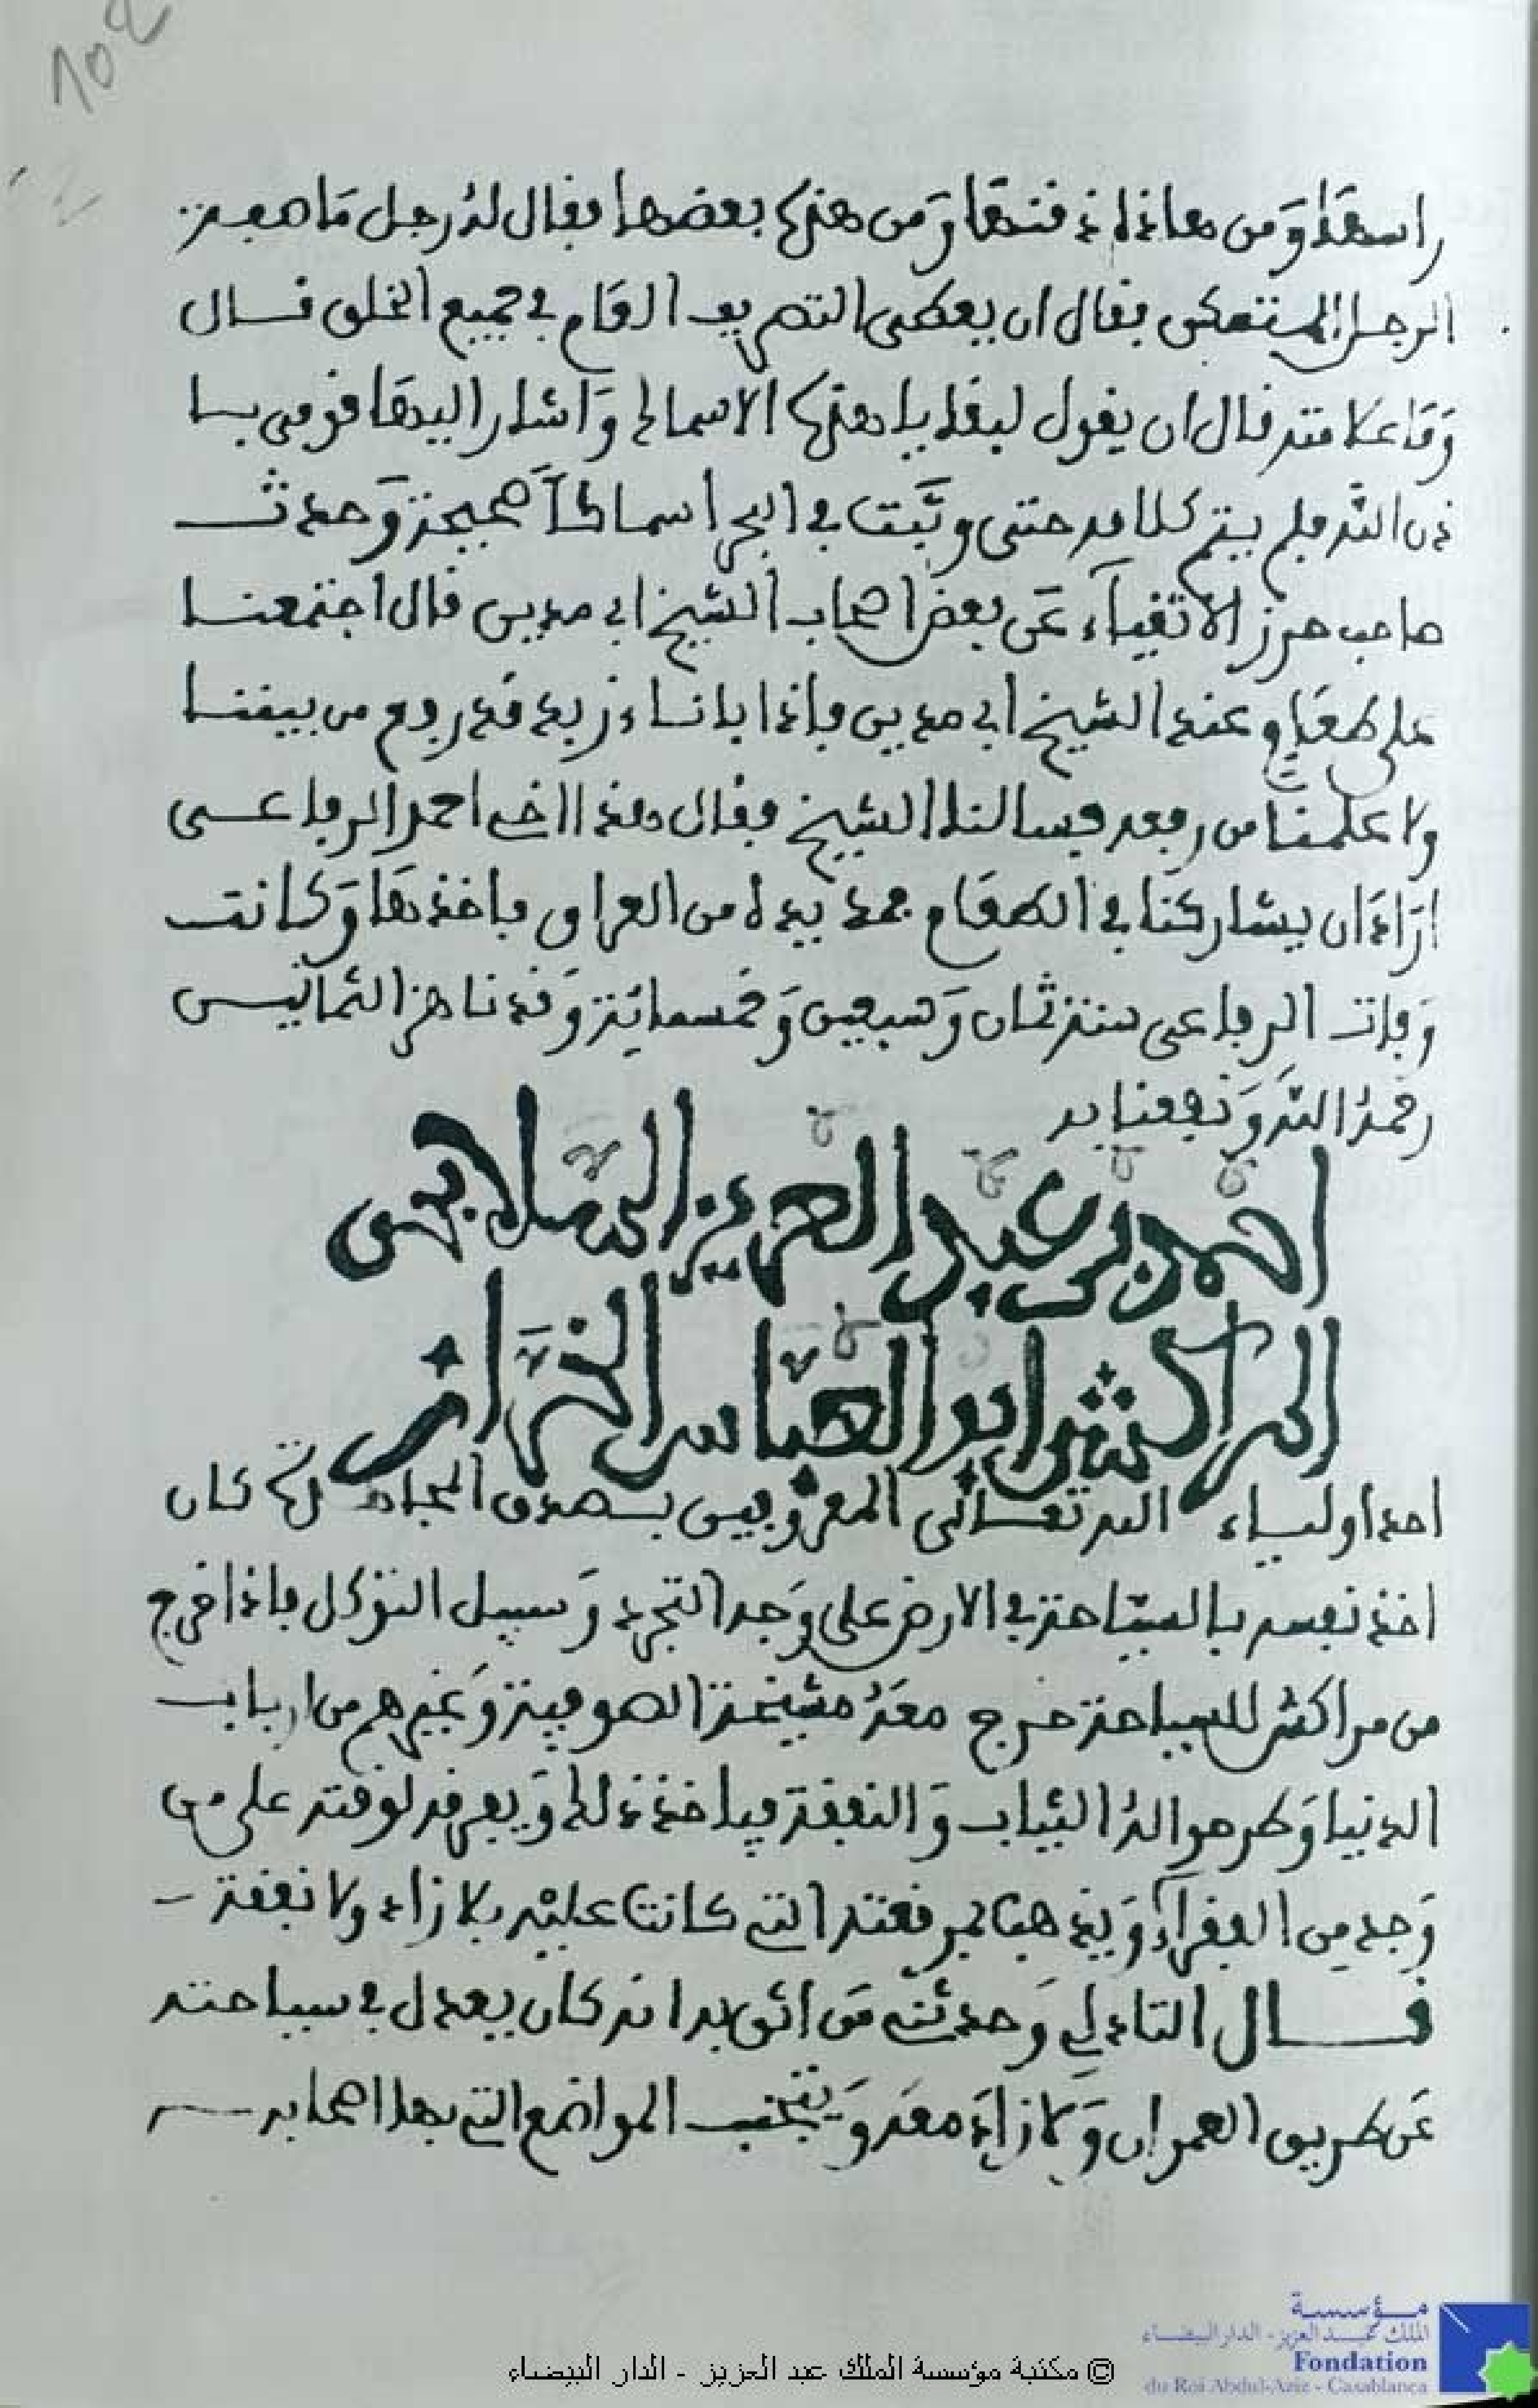 104
راسها ومن هاذا ذفنها ومن هذا بعضها فقال له رجل ما صفة
الرجل المتمكن فقال ان يعطى التصريف العام في جميع الخلق قال
وما علامته قال ان يقول لبقايا هذه الاسماك واشار اليها قومي با
ذن الله فلم يتم كلامه حتى وثبت في البحر اسماكا صحيحة وحدث
صاحب حرز الاتقياء عن بعض اصحاب الشيخ ابي مدين قال اجتمعنا
على طعام عند الشيخ ابي مدين فاذا باناء زبد قد رفع من بيننا
ولا علمنا من رفعه فسالنا الشيخ فقال هذا اخي احمد الرفاعى
اراد ان يشاركنا في الطعام فمد يده من العراق فاخذها وكانت
وفات الرفاعى سنة ثمان وسبعين وخمسمائة وقد ناهز الثمانين
رحمه الله ونفعنا به
احمد بن عبد العزيز السلاجى
المراكشي ابو العباس الخراز
احد اولياء الله تعالى المعروفين بصدق المجاهدة كان
اخذ نفسه بالسياحة في الارض على وجه التجرد وسبيل التوكل فاذا خرج
من مراكش للسياحة خرج معه مشيخة الصوفية وغيرهم من ارباب
الدنيا وطرحوا له الثياب والنفقة فياخذ ذلك ويفرقه لوقته على من
وجد من الفقراء ويذهب في مرقعته التي كانت عليه بلا زاد ولا نفقة
قال التادلي وحدثني من اثق به انه كان يعدل في سياحته
عن طريق العمران ولا زاد معه ويتجنب المواضع التي بها اصحابه
مؤسسة
الملك عبد العزيز - الدار البيضاء
Fondation
du Roi Abdul-Aziz - Casablanca
© مكتبة مؤسسة الملك عبد العزيز - الدار البيضاء